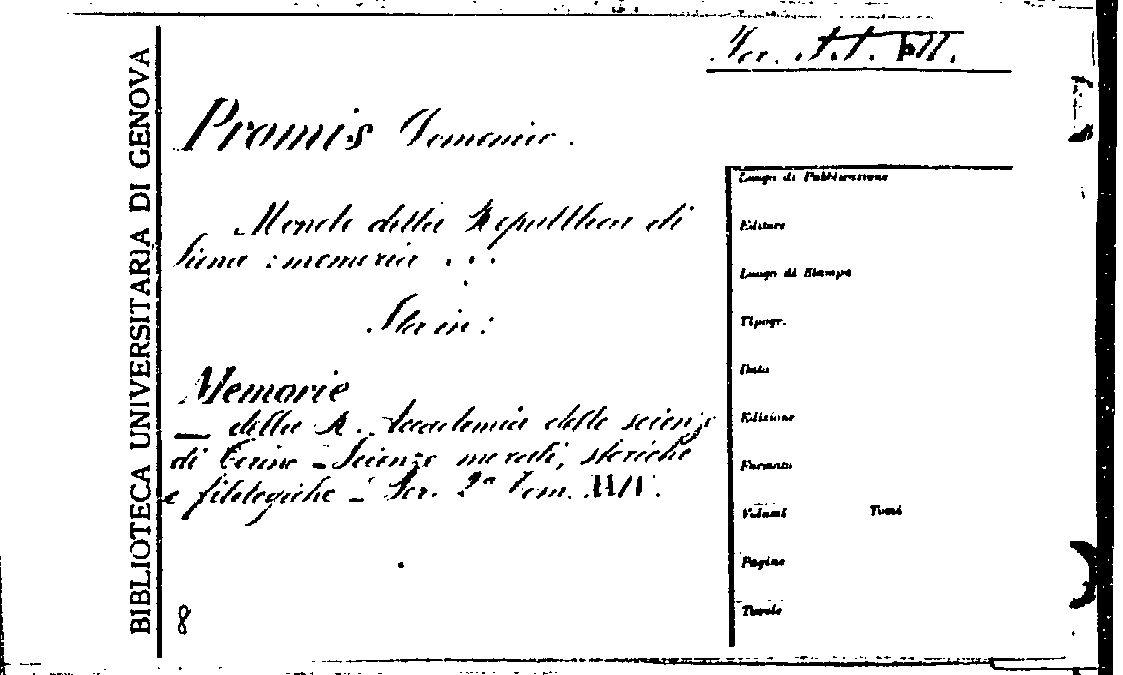 BIBLIOTECA UNIVERSITARIA DI GENOVA
Ser.
Promis Domenico.
Monete della Repubblica di
Siena : memoria . . .
Sta in :
Memorie
— della R. Accademia delle scienze
di Torino – Scienze morali, storiche
e filologiche – Ser. 2ª Tom. XXIV.
8
Luogo di Pubblicazione
Editore
Luogo di Stampa
Tipogr.
Data
Edizione
Formato
Volumi Tomi
Pagine
Tavole